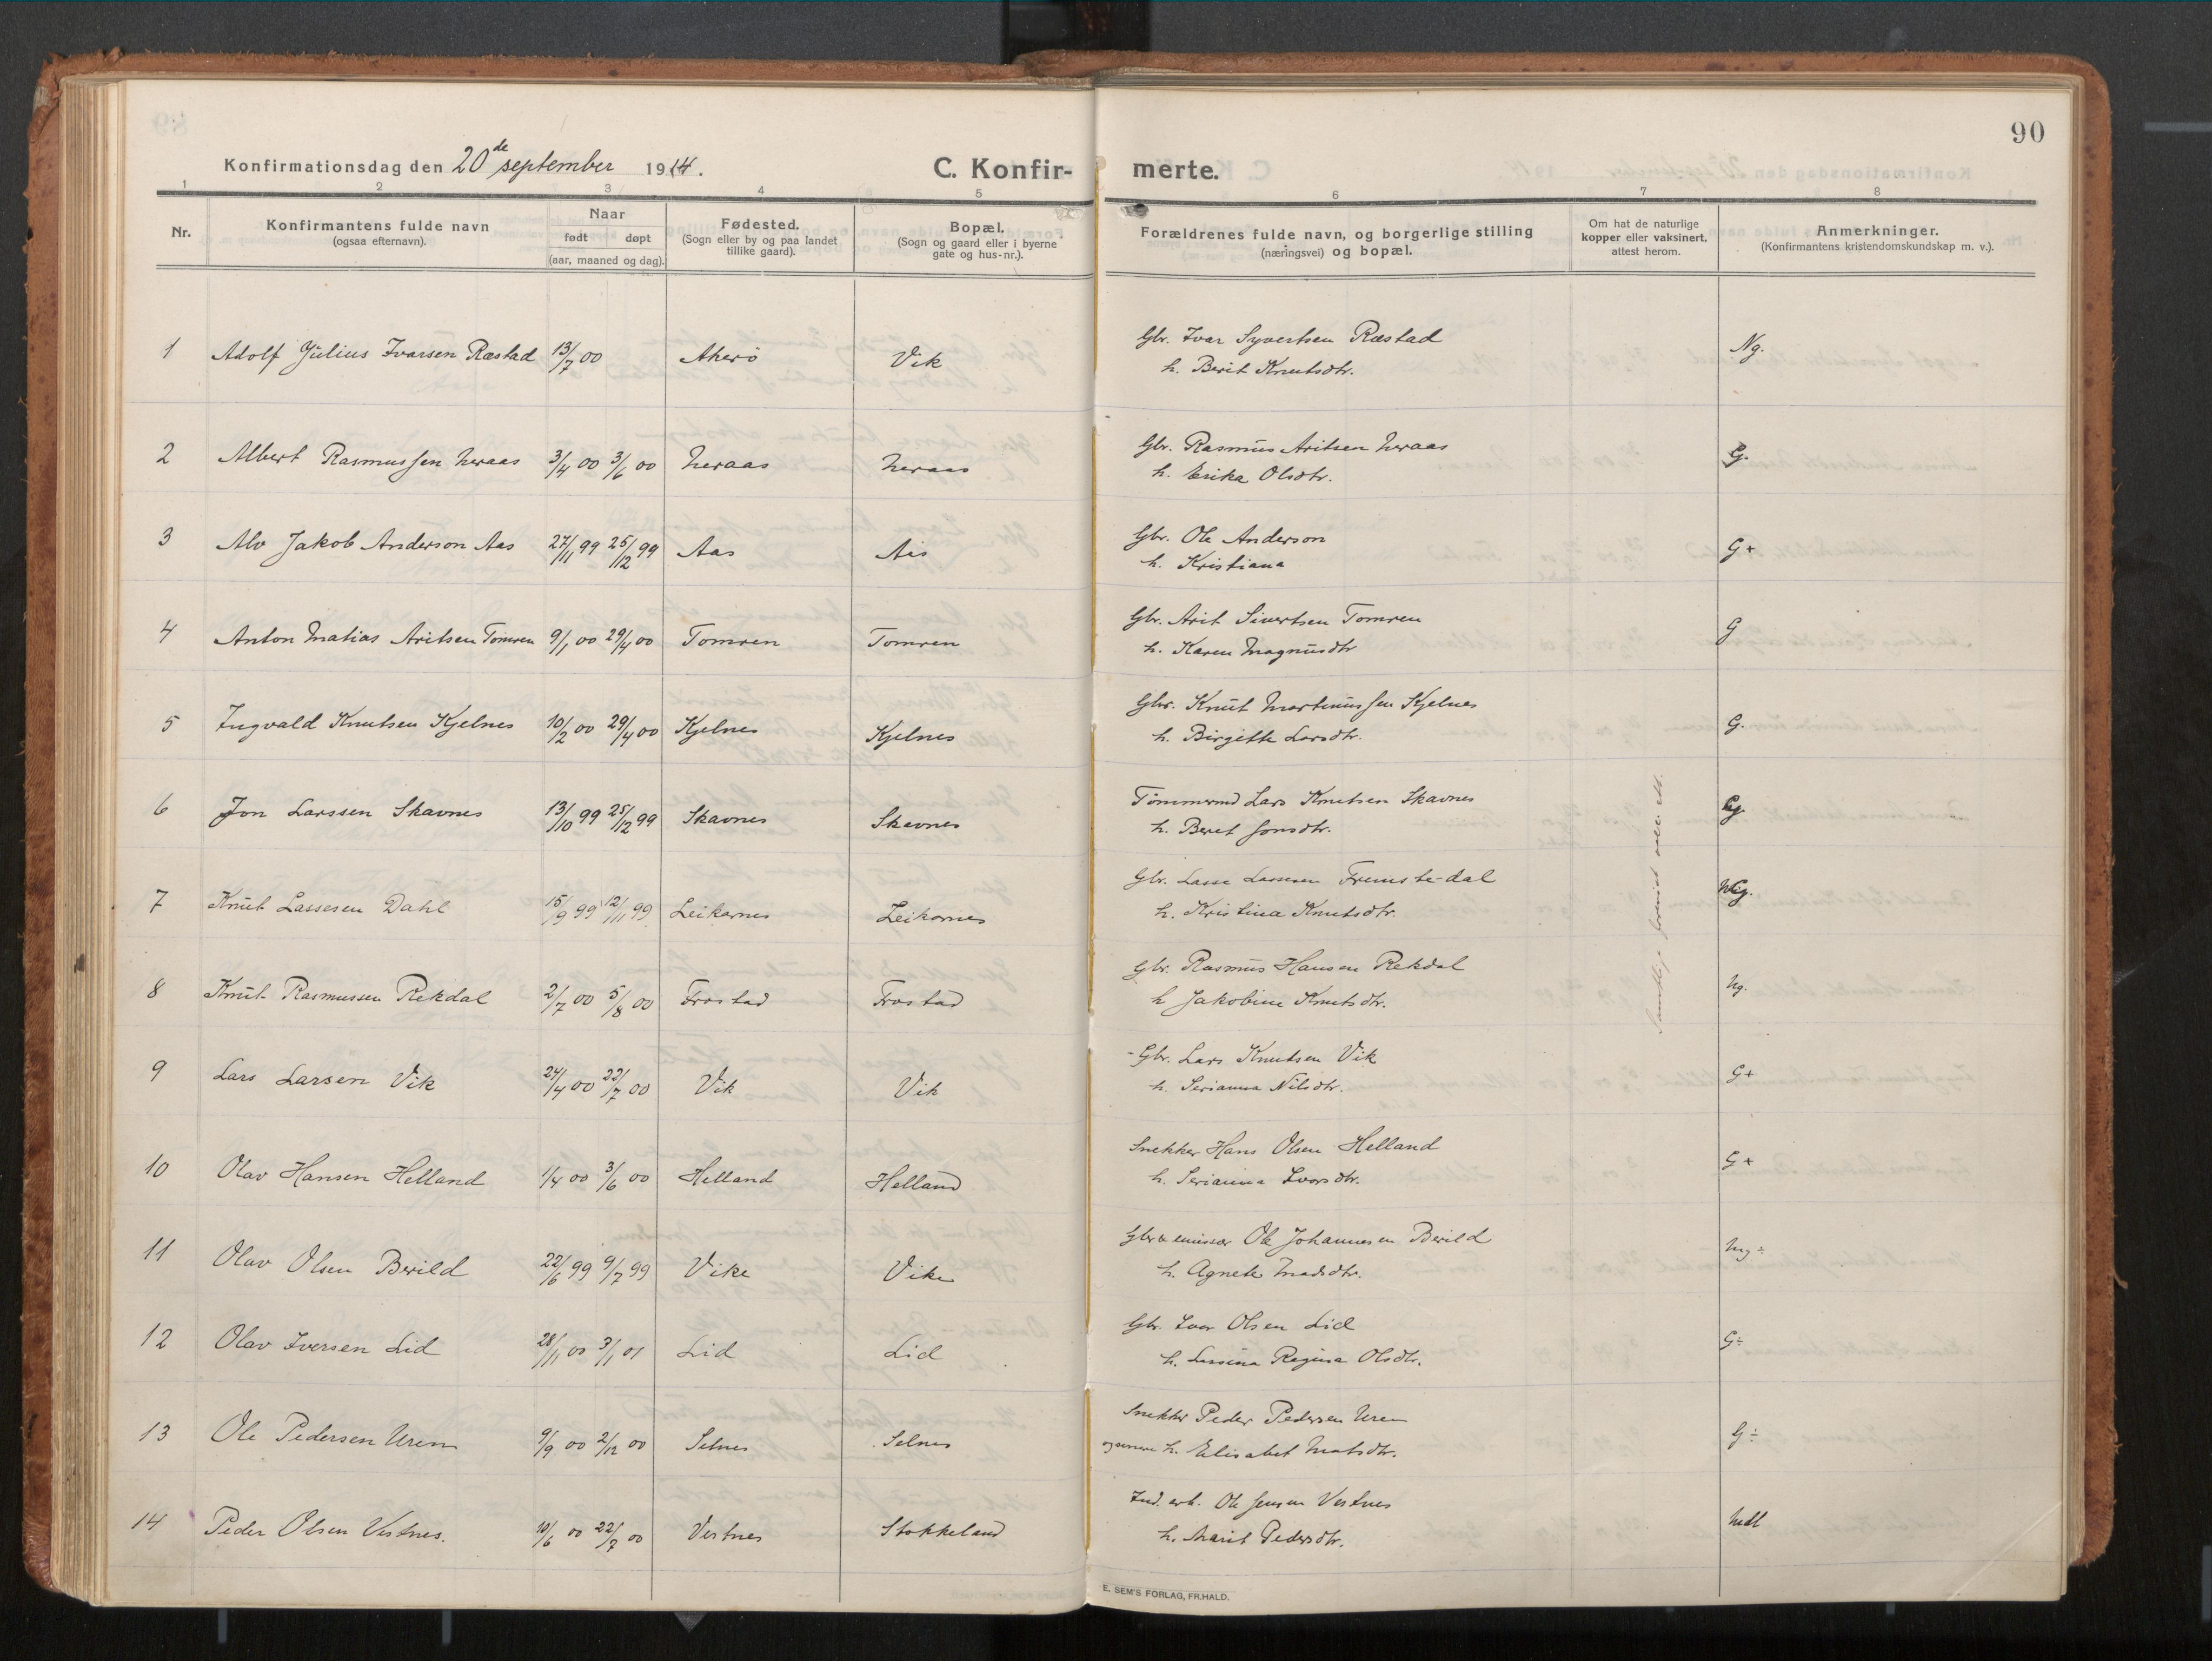 90
Konfirmationsdag den 20de september 1914.
C. Konfir-
merte.
1 2 3 4 5 6 7 8
Nr.
Konfirmantens fulde navn
(ogsaa efternavn).
Naar
født døpt
(aar, maaned og dag).
Fødested.
(Sogn eller by og paa landet
tillike gaard).
Bopæl.
(Sogn og gaard eller i byerne
gate og hus-nr.).
Forældrenes fulde navn, og borgerlige stilling
(næringsvei) og bopæl.
Om hat de naturlige
kopper eller vaksinert,
attest herom.
Anmerkninger.
(Konfirmantens kristendomskundskap m. v.).
1 Adolf Julius Ivarsen Ræstad 13/7 00 Akerö Vik Gbr. Ivar Syvertsen Ræstad Ng.
h. Berit Knutsdtr.
2 Albert Rasmussen Neraas 3/4 00 3/6 00 Neraas Neraas Gbr. Rasmus Aritsen Neraas G.
h. Erika Olsdtr.
3 Alv Jakob Anderson Aas 27/11 99 25/12 99 Aas Aas Gbr. Ole Anderson G+
h. Kristiana
4 Anton Matias Aritsen Tomren 9/1 00 29/4 00 Tomren Tomren Gbr. Arit Sivertsen Tomren G
h. Karen Magnusdtr
5 Ingvald Knutsen Kjelnes 10/2 00 29/4 00 Kjelnes Kjelnes Gbr. Knut Martinussen Kjelnes G.
h. Birgitte Larsdtr.
6 Jon Larssen Skavnes 13/10 99 25/12 99 Skavnes Skavnes Tömmermd Lars Knutsen Skavnes
h. Beret Jonsdtr.
7 Knut Lassesen Dahl 15/9 99 12/11 99 Leikarnes Leikarnes Gbr. Lasse Lassesen Fremste-dal
h. Kristina Knutsdtr.
8 Knut Rasmussen Rekdal 2/7 00 5/8 00 Frostad Frostad Gbr. Rasmus Hansen Rekdal Ng.
h Jakobine Knutsdtr.
9 Lars Larsen Vik 24/4 00 22/7 00 Vik Vik Gbr. Lars Knutsen Vik G+
h. Serianna Nilsdtr.
10 Olav Hansen Helland 1/4 00 3/6 00 Helland Helland Snekker Hans Olsen Helland G+
h. Serianna Ivarsdtr.
11 Olav Olsen Berild 22/6 99 9/7 99 Vike Vike Gbr & emissær Ole Johannesen Berild Mg÷
h. Agnete Madsdtr.
12 Olav Iversen Lid 28/11 00 3/1 01 Lid Lid Gbr. Iver Olsen Lid G÷
h. Regina Olsdtr.
13 Ole Pedersen Urem 9/9 00 2/12 00 Selnes Selnes Snekker Peder Pedersen Urem G÷
h. Elisabet Matsdtr.
14 Peder Olsen Vestnes. 10/6 00 22/7 00 Vestnes Stokkeland Ind. arb. Ole Jensen Vestnes
h. Marit Pedersdtr.
E. SEM'S FORLAG, FR.HALD.